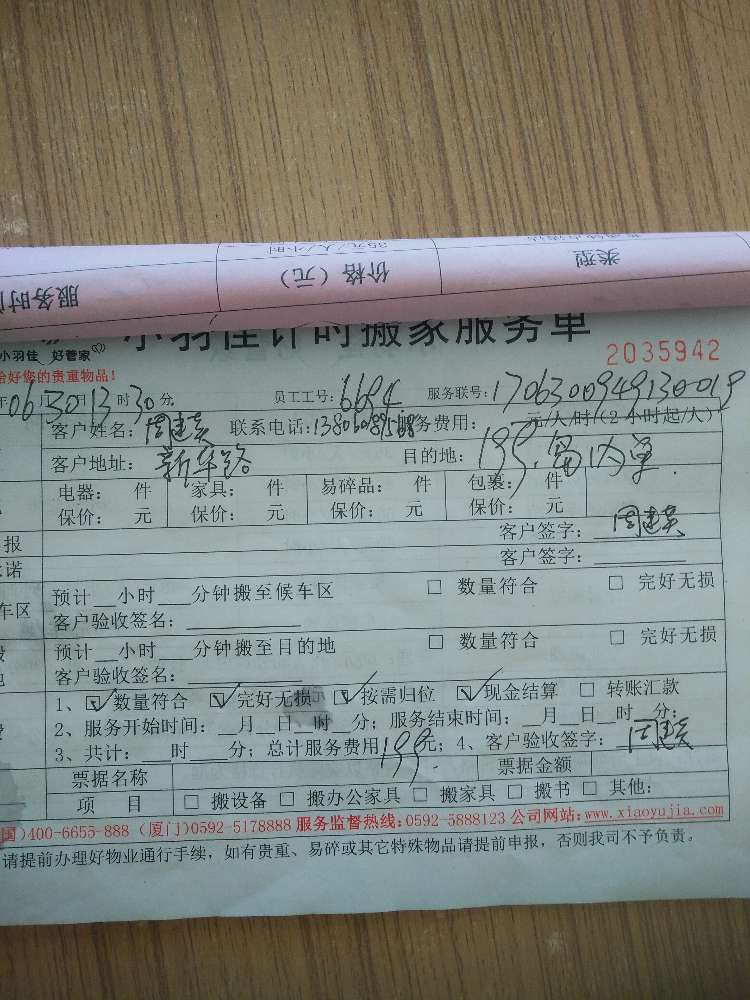 类型 价格（元） 服务时
小羽佳计时搬家服务单
小羽佳 好管家
2035942
好您的贵重物品！
年06月30日13时30分 员工工号：6694 服务联号：1706300949130019
客户姓名：周建英 联系电话： 服务费用： 元/人/时（2小时起/人）
客户地址：新华路 目的地： 199.
电器： 件 家具： 件 易碎品： 件 包裹： 件
保价： 元 保价： 元 保价： 元 保价： 元
报 客户签字：周建英
诺 客户签字：
车区 预计__小时___分钟搬至候车区 □ 数量符合 □ 完好无损
客户验收签名：
预计__小时___分钟搬至目的地 □ 数量符合 □ 完好无损
客户验收签名：
1、☑数量符合 ☑完好无损 ☑按需归位 ☑现金结算 □ 转账汇款
2、服务开始时间：__月__日__时__分；服务结束时间：__月__日__时__分；
3、共计：___时___分；总计服务费用199元；4、客户验收签字：周建英
票据名称 票据金额
项 目 □ 搬设备 □ 搬办公家具 □ 搬家具 □ 搬书 □ 其他：
国)400-6655-888 (厦门)0592-5178888 服务监督热线:0592-5888123 公司网站:www.xiaoyujia.com
请提前办理好物业通行手续，如有贵重、易碎或其它特殊物品请提前申报，否则我司不予负责。